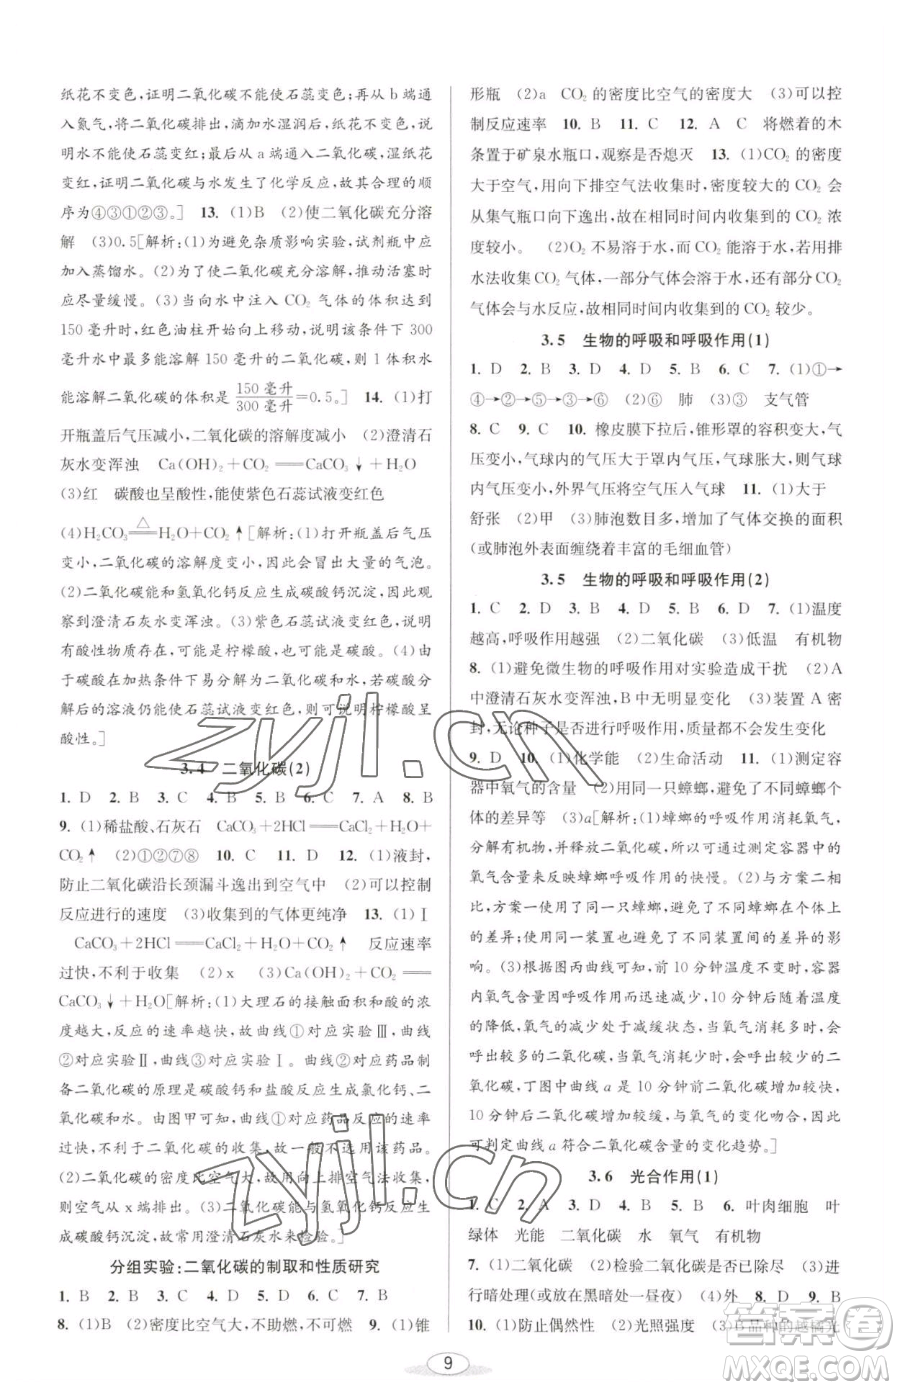 纸花不变色,证明二氧化碳不能使石蕊变红;再从 b 端通
入氮气,将二氧化碳排出,滴加水湿润后,纸花不变色,说
明水不能使石蕊变红;最后从 a 端通入二氧化碳,湿纸花
变红,证明二氧化碳与水发生了化学反应,故其操作的顺
序为④③①②③。] 13. (1)B (2)使二氧化碳充分溶
解 (3)0.5[解析:(1)为避免杂质影响实验,试剂瓶中应
加入蒸馏水。(2)为了使二氧化碳充分溶解,推动活塞时
应尽量缓慢。(3)当向水中注入 CO₂ 气体的体积达到
150 毫升时,红色油柱开始向上移动,说明该条件下 300
毫升水中最多能溶解 150 毫升的二氧化碳,则 1 体积水
能溶解二氧化碳的体积是 150 毫升/300 毫升=0.5。] 14. (1)打
开瓶盖后气压减小,二氧化碳的溶解度减小 (2)澄清石
灰水变浑浊 Ca(OH)₂+CO₂══CaCO₃↓+H₂O
(3)红 碳酸也呈酸性,能使紫色石蕊试液变红色
(4)H₂CO₃ △══ H₂O+CO₂↑[解析:(1)打开瓶盖后气压
变小,二氧化碳的溶解度变小,因此会冒出大量的气泡。
(2)二氧化碳能和氢氧化钙反应生成碳酸钙沉淀,因此观
察到澄清石灰水变浑浊。(3)紫色石蕊试液变红色,说明
有酸性物质存在,可能是柠檬酸,也可能是碳酸。(4)由
于碳酸在加热条件下易分解为二氧化碳和水,若碳酸受热
分解后的溶液仍能使石蕊试液变红,则可说明柠檬酸呈
酸性。]
3.4 二氧化碳(2)
1. D 2. B 3. C 4. B 5. B 6. C 7. A 8. B
9. (1)稀盐酸、石灰石 CaCO₃+2HCl══CaCl₂+H₂O+
CO₂↑ (2)①②⑦⑧ 10. C 11. D 12. (1)液封,
防止二氧化碳沿长颈漏斗逸出到空气中 (2)可以控制
反应进行的速度 (3)收集到的气体更纯净 13. (1)Ⅰ
CaCO₃+2HCl══CaCl₂+H₂O+CO₂↑ 反应速率
过快,不利于收集 (2)x (3)Ca(OH)₂+CO₂══
CaCO₃↓+H₂O[解析:(1)大理石的接触面积越大、盐酸的浓
度越大,反应的速率越快,故曲线①对应实验Ⅲ,曲线
②对应实验Ⅱ,曲线③对应实验Ⅰ。由图可知,对应药品制
备二氧化碳的原理是碳酸钙和盐酸反应生成氯化钙、二
氧化碳和水。由图甲可知,曲线①对应的反应的速率
过快,不利于二氧化碳的收集,故一般不选用该药品。
(2)二氧化碳的密度比空气大,故用向上排空气法收集时,
空气从 x 端排出。(3)二氧化碳能与氢氧化钙反应生成
碳酸钙沉淀,故常用澄清石灰水来检验。]
分组实验:二氧化碳的制取和性质研究
1. B 2. B 3. A 4. C 5. D 6. D 7. B
8. (1)B (2)密度比空气大、不助燃、不可燃 9. (1)锥
形瓶 (2)a CO₂ 的密度比空气的密度大 (3)可以控
制反应速率 10. B 11. C 12. A C 将燃着的木
条置于矿泉水瓶口,观察是否熄灭 13. (1)CO₂ 的密度
大于空气,用向下排空气法收集时,密度较大的 CO₂ 会
从集气瓶口向下逸出,故在相同时间内收集到的 CO₂ 浓
度较小。 (2)O₂ 不易溶于水,而 CO₂ 能溶于水,若用排
水法收集 CO₂ 气体,一部分气体会溶于水,还有一部分
气体会与水反应,故相同时间内收集到的 CO₂ 较少。
3.5 生物的呼吸和呼吸作用(1)
1. D 2. B 3. D 4. D 5. D 6. D 7. (1)①→
④→②→⑤→③→⑥ (2)⑥ 肺 (3)③ 支气管
8. C 9. C 10. 橡皮膜下拉后,锥形罩的容积变大,气
压变小,气球内的气压大于罩内气压,气球胀大,则可以
说明外部气压将空气压入气球 11. (1)大于
舒张 (2)甲 (3)肺泡数目多,增加了气体交换的面积
(或肺泡外表面缠绕着丰富的毛细血管)
3.5 生物的呼吸和呼吸作用(2)
1. C 2. D 3. B 4. D 5. C 6. D 7. (1)温度
越高,呼吸作用越强 (2)二氧化碳 (3)低温 有机物
8. (1)避免微生物的呼吸作用对实验造成干扰 (2)A
中澄清石灰水变浑浊,B 中无明显变化 (3)装置 A 密
封,无论种子是否进行呼吸作用,质量都不会发生变化
9. D 10. (1)化学能 (2)生命活动 11. (1)测定容
器中氧气的含量 (2)使用了不同只蟑螂,存在蟑螂个
体的差异等 (3)a[解析:(1)蟑螂的呼吸消耗氧气,
并释放二氧化碳,故可通过测定容器中氧气的
含量变化来反映蟑螂的呼吸作用的快慢。(2)方案二相
比,方案一使用了不同只蟑螂,可能存在个体上
的差异,使用同一装置也可以减少不同装置的差异的影
响。(3)根据图丙曲线可知,前 10 分钟内,容器
内氧气含量因呼吸作用迅速减少,10 分钟后,由于温度
的降低,氧气的减少变得缓慢。氧气消耗多时,呼吸作用
呼出的二氧化碳多,氧气消耗少时,呼吸作用呼出的二
氧化碳少,丁图中曲线 a 是前二氧化碳增加较快,
10 分钟后二氧化碳增加较缓,与氧气的变化一致,故
可判定曲线 a 符合二氧化碳含量的变化趋势。]
3.6 光合作用(1)
1. C 2. D 3. D 4. B 5. B 6. 叶肉细胞 叶
绿体 光能 二氧化碳 水 氧气 有机物
7. (1)二氧化碳 (2)检验二氧化碳是否已除尽 (3)进
行暗处理(或放在黑暗处一昼夜) 8. D 9. B
10. (1)防止偶然性 (2)光照强度 (3)B品种的越橘光
9
zyjl.cn
zyjl.cn
答案圈
MXQE.COM